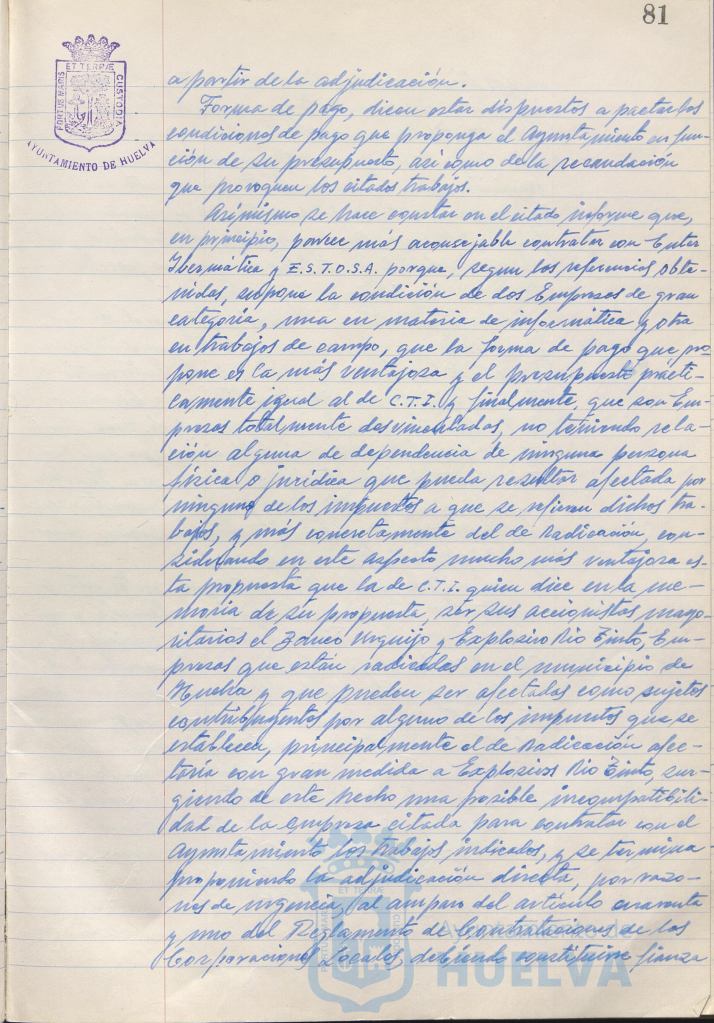 81
ET TERRÆ
PORTUS MARIS
CUSTODIA
AYUNTAMIENTO DE HUELVA
a partir de la adjudicación.
Forma de pago, dicen estar dispuestos a pactar las
condiciones de pago que proponga el Ayuntamiento en fun-
ción de su presupuesto, así como de la recaudación
que provoquen los citados trabajos.
Asimismo se hace constar en el citado informe que,
en principio, parece más aconsejable contratar con Enter
Ibermática y E.S.T.O.S.A. porque, segun las referencias obte-
nidas, supone la condición de dos Empresas de gran
categoría, una en materia de informática y otra
en trabajos de campo, que la forma de pago que pro-
pone es la más ventajosa y el presupuesto prácti-
camente igual al de C.T.I. y finalmente, que son Em-
presas totalmente desvinculadas, no teniendo rela-
ción alguna de dependencia de ninguna persona
física o jurídica que pueda resultar afectada por
ninguno de los impuestos a que se refieren dichos tra-
bajos, y más concretamente del de Radicación, con-
siderando en este aspecto mucho más ventajosa es-
ta propuesta que la de C.T.I. quien dice en la me-
moria de su propuesta, ser sus accionistas mayo-
ritarios el Banco Urquijo y Explosivo Rio Tinto, Em-
presas que están radicadas en el municipio de
Huelva y que pueden ser afectadas como sujetos
contribuyentes por alguno de los impuestos que se
establecen, principalmente el de Radicación afec-
taría con gran medida a Explosivos Rio Tinto, sur-
giendo de este hecho una posible incompatibili-
dad de la Empresa citada para contratar con el
Ayuntamiento los trabajos indicados, y se termina
proponiendo la adjudicación directa, por razo-
nes de urgencia, al amparo del artículo cuarenta
y uno del Reglamento de Contrataciones de las
Corporaciones Locales, debiendo constituirse fianza
HUELVA